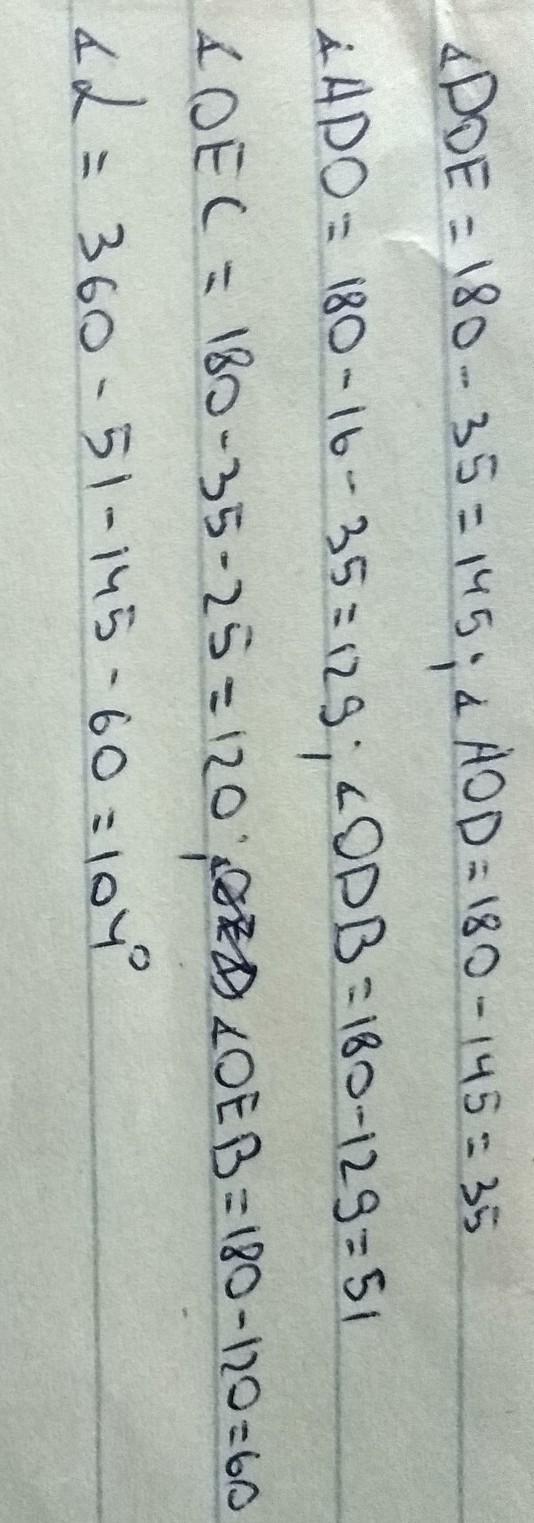 ∠DOE = 180 - 35 = 145; ∠AOD = 180 - 145 = 35
∠ADO = 180 - 16 - 35 = 129; ∠ODB = 180 - 129 = 51
∠OEC = 180 - 35 - 25 = 120; ∠OEB = 180 - 120 = 60
∠α = 360 - 51 - 145 - 60 = 104°